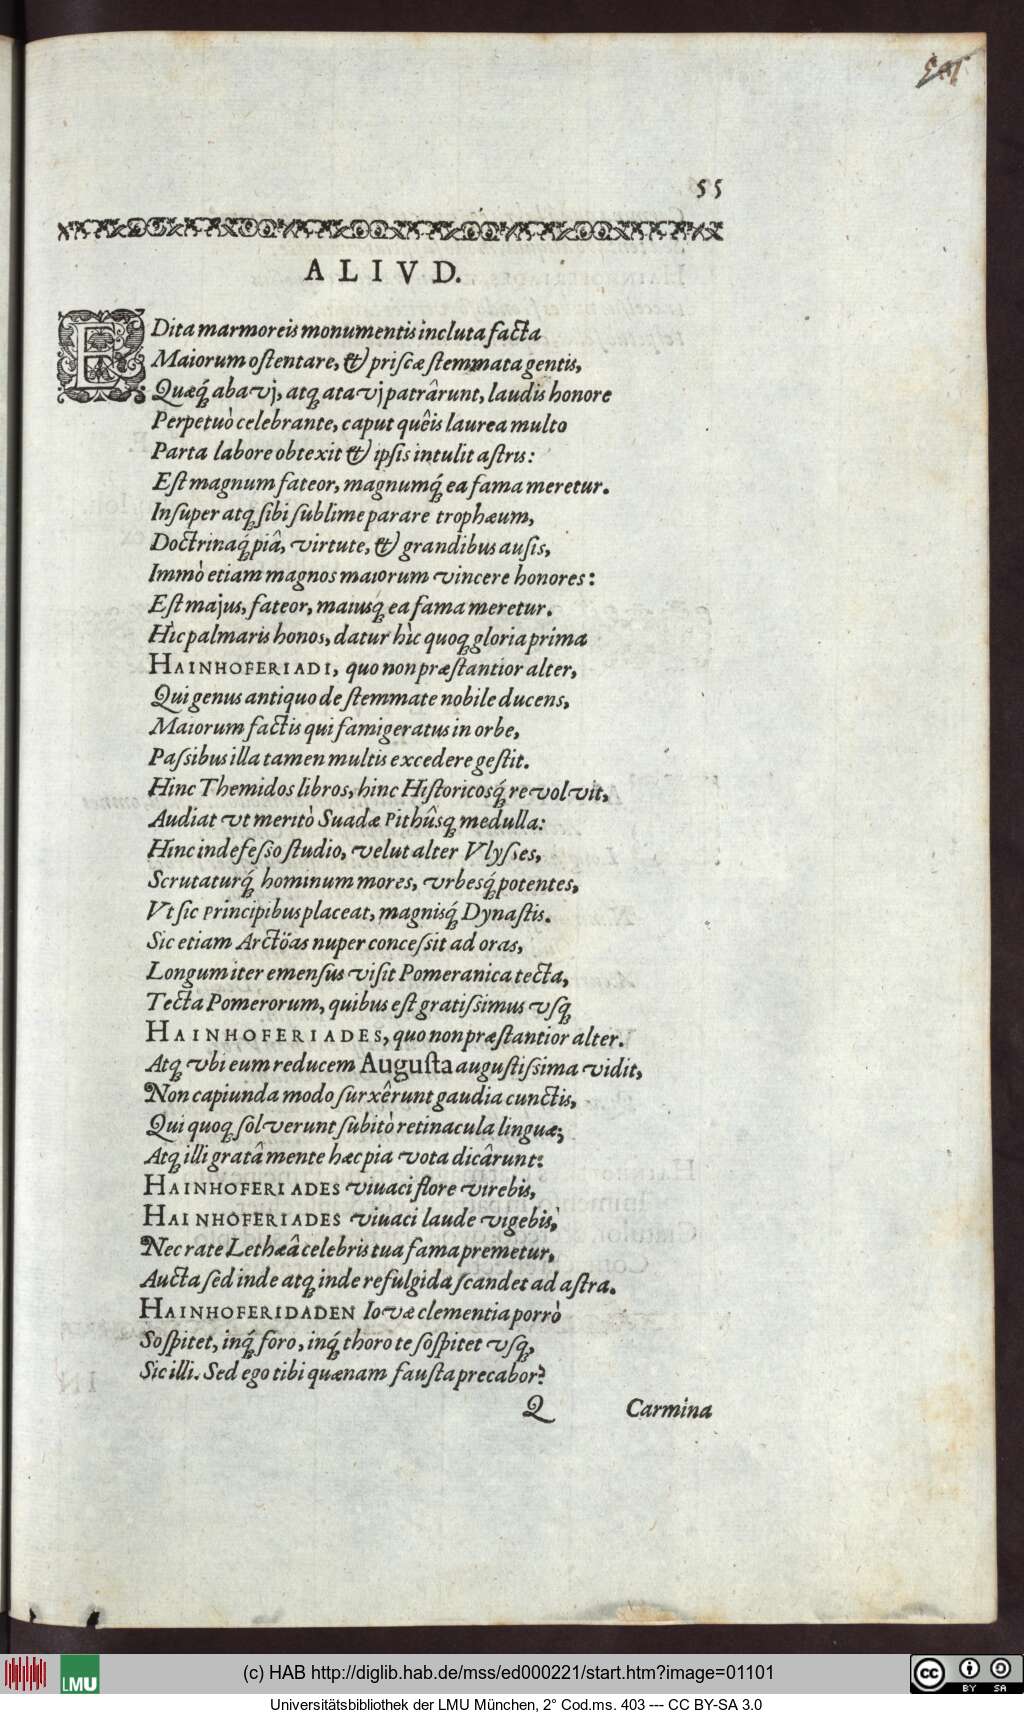 55
ALIVD.
EDita marmoreis monumentis incluta facta
Maiorum oſtentare, & priſcæ ſtemmata gentis,
Quæq́; abavj, atq; atavj patrârunt, laudis honore
Perpetuò celebrante, caput quêis laurea multo
Parta labore obtexit & ipſis intulit aſtris:
Eſt magnum fateor, magnumq́; ea fama meretur.
Inſuper atq; ſibi ſublime parare trophæum,
Doctrinaq́; piâ, virtute, & grandibus auſis,
Immò etiam magnos maiorum vincere honores:
Eſt majus, fateor, maiusq́; ea fama meretur.
Hìc palmaris honos, datur hìc quoq; gloria prima
HAINHOFERIADI, quo non præſtantior alter,
Qui genus antiquo de ſtemmate nobile ducens,
Maiorum factis qui famigeratus in orbe,
Paſsibus illa tamen multis excedere geſtit.
Hinc Themidos libros, hinc Hiſtoricosq́; revolvit,
Audiat vt meritò Suadæ Pithûsq; medulla:
Hinc indefeſſo ſtudio, velut alter Vlyſſes,
Scrutaturq́; hominum mores, vrbesq́; potentes,
Vt ſic Principibus placeat, magnisq́; Dynaſtis.
Sic etiam Arctöas nuper conceſsit ad oras,
Longum iter emenſus viſit Pomeranica tecta,
Tecta Pomerorum, quibus eſt gratiſsimus vſq;
HAINHOFERIADES, quo non præſtantior alter.
Atq; vbi eum reducem Auguſta auguſtiſsima vidit,
Non capiunda modo ſurxêrunt gaudia cunctis,
Qui quoq; ſolverunt ſubitò retinacula linguæ;
Atq; illi gratâ mente hæc pia vota dicârunt:
HAINHOFERIADES viuaci flore virebis,
HAINHOFERIADES viuaci laude vigebis,
Nec rate Lethæâ celebris tua fama premetur,
Aucta ſed inde atq; inde refulgida ſcandet ad aſtra.
HAINHOFERIDADEN Iovæ clementia porrò
Soſpitet, inq́; foro, inq́; thoro te ſoſpitet vſq;,
Sic illi. Sed ego tibi quænam fauſta precabor?
Q Carmina
LMU
(c) HAB http://diglib.hab.de/mss/ed000221/start.htm?image=01101
cc BY SA
Universitätsbibliothek der LMU München, 2° Cod.ms. 403 --- CC BY-SA 3.0